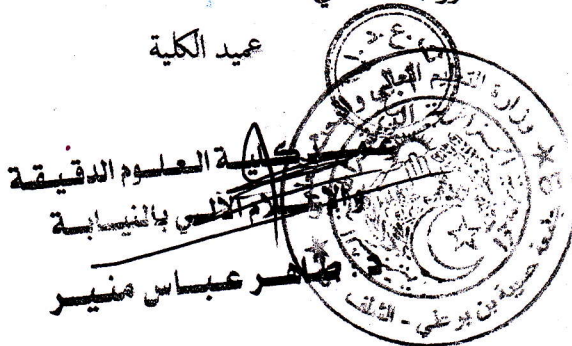 عميد الكلية
عميد كلية العلوم الدقيقة
والإعلام الآلي بالنيابة
د. طاهر عباس منير
وزارة التعليم العالي والبحث
جامعة حسيبة بن بوعلي - الشلف